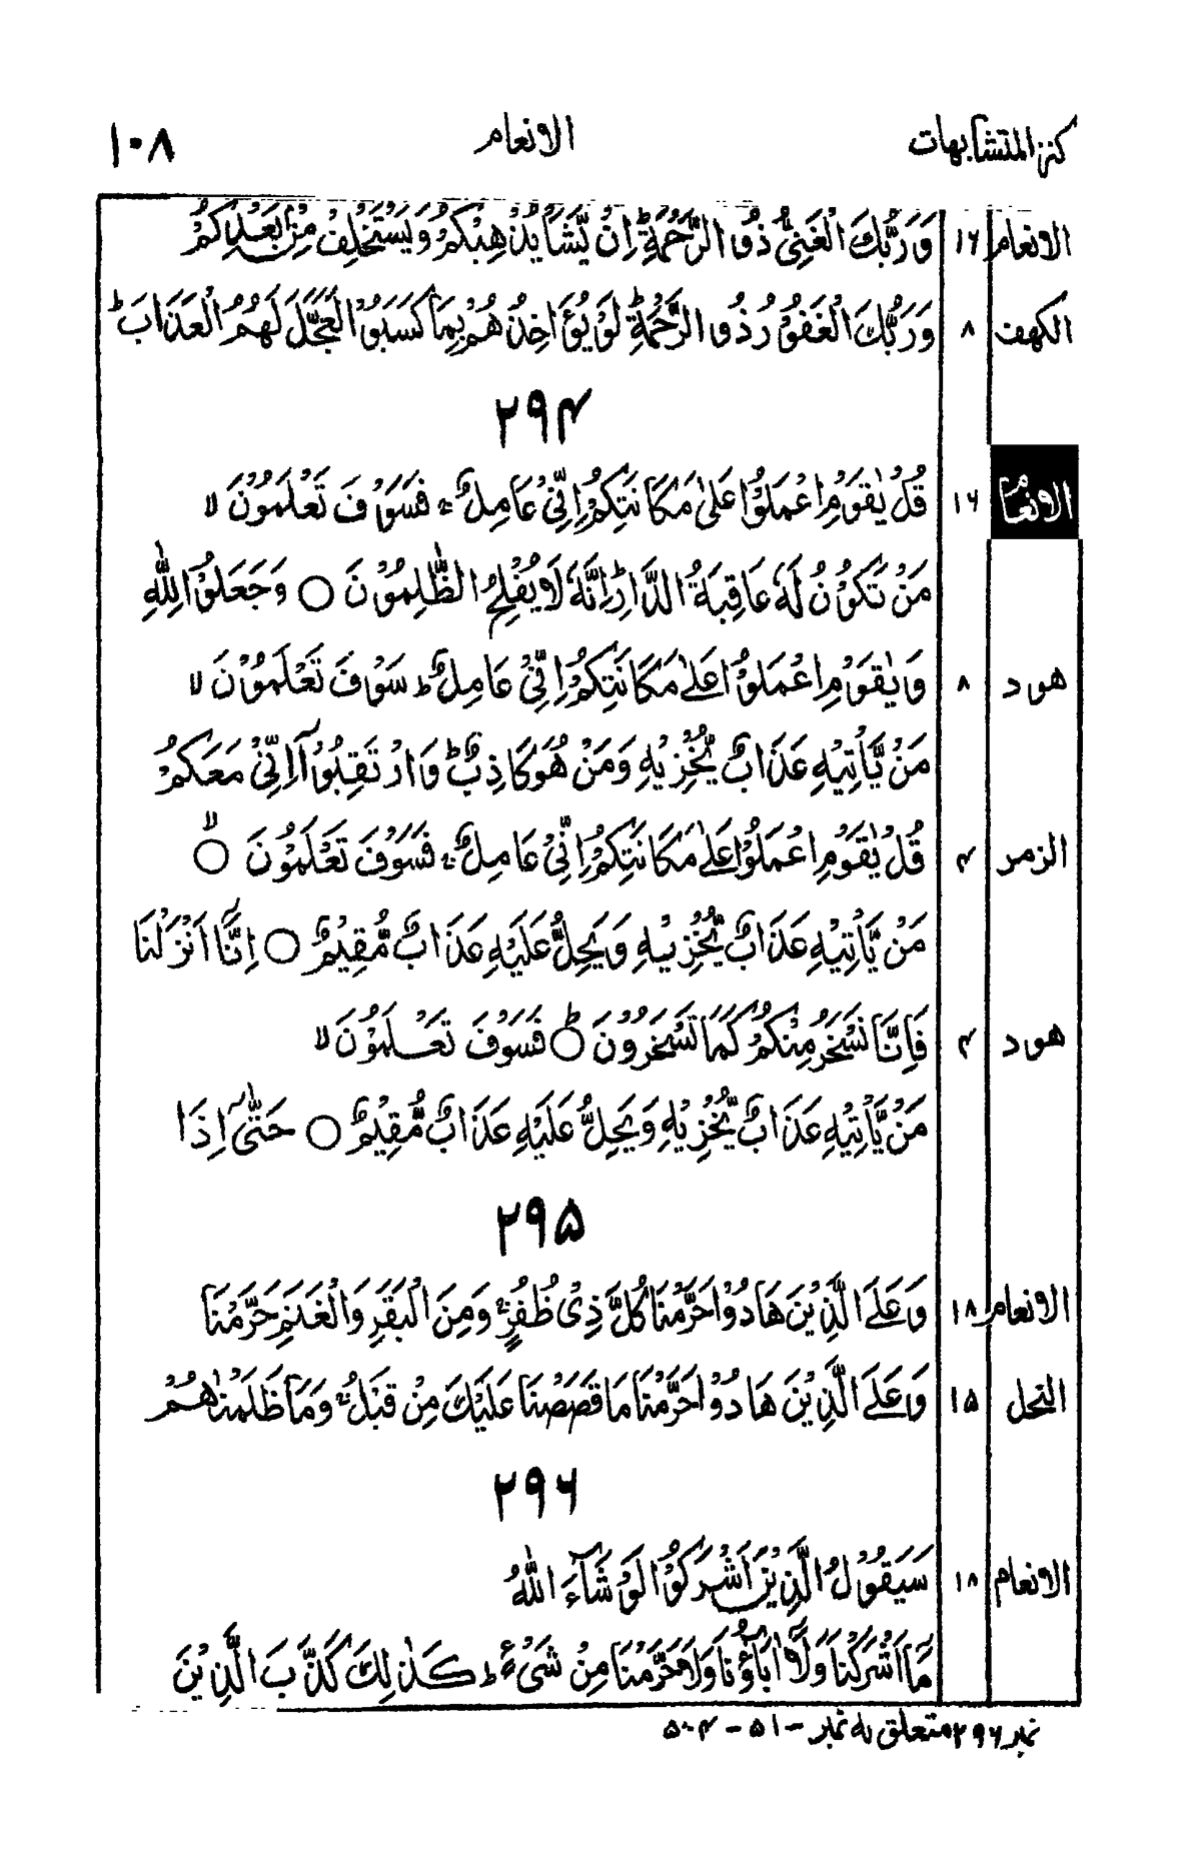 كنز المتشابهات الانعام ١٠٨
الانعام ١٦ وَرَبُّكَ الْغَنِيُّ ذُو الرَّحْمَةِ ؕ اِنْ يَّشَاْ يُذْهِبْكُمْ وَيَسْتَخْلِفْ مِنْۢ بَعْدِكُمْ
الكهف ٨ وَرَبُّكَ الْغَفُوْرُ ذُو الرَّحْمَةِ ؕ لَوْ يُؤَاخِذُهُمْ بِمَا كَسَبُوْا لَعَجَّلَ لَهُمُ الْعَذَابَ ؕ
۲۹۴
الانعام ١٦ قُلْ يٰقَوْمِ اعْمَلُوْا عَلٰى مَكَانَتِكُمْ اِنِّىْ عَامِلٌ ۚ فَسَوْفَ تَعْلَمُوْنَ ۙ
مَنْ تَكُوْنُ لَهٗ عَاقِبَةُ الدَّارِ ؕ اِنَّهٗ لَا يُفْلِحُ الظّٰلِمُوْنَ ○ وَجَعَلُوْا لِلّٰهِ
هود ٨ وَيٰقَوْمِ اعْمَلُوْا عَلٰى مَكَانَتِكُمْ اِنِّىْ عَامِلٌ ؕ سَوْفَ تَعْلَمُوْنَ ۙ
مَنْ يَّاْتِيْهِ عَذَابٌ يُّخْزِيْهِ وَمَنْ هُوَ كَاذِبٌ ؕ وَارْتَقِبُوْۤا اِنِّىْ مَعَكُمْ
الزمر ۴ قُلْ يٰقَوْمِ اعْمَلُوْا عَلٰى مَكَانَتِكُمْ اِنِّىْ عَامِلٌ ۚ فَسَوْفَ تَعْلَمُوْنَ ○ۙ
مَنْ يَّاْتِيْهِ عَذَابٌ يُّخْزِيْهِ وَيَحِلُّ عَلَيْهِ عَذَابٌ مُّقِيْمٌ ○ اِنَّاۤ اَنْزَلْنَا
هود ۴ فَاِنَّا نَسْخَرُ مِنْكُمْ كَمَا تَسْخَرُوْنَ ○ؕ فَسَوْفَ تَعْلَمُوْنَ ۙ
مَنْ يَّاْتِيْهِ عَذَابٌ يُّخْزِيْهِ وَيَحِلُّ عَلَيْهِ عَذَابٌ مُّقِيْمٌ ○ حَتّٰٓى اِذَا
۲۹۵
الانعام ١٨ وَعَلَى الَّذِيْنَ هَادُوْا حَرَّمْنَا كُلَّ ذِىْ ظُفُرٍ ۚ وَمِنَ الْبَقَرِ وَالْغَنَمِ حَرَّمْنَا
النحل ۱۵ وَعَلَى الَّذِيْنَ هَادُوْا حَرَّمْنَا مَا قَصَصْنَا عَلَيْكَ مِنْ قَبْلُ ۚ وَمَا ظَلَمْنٰهُمْ
۲۹۶
الانعام ١٨ سَيَقُوْلُ الَّذِيْنَ اَشْرَكُوْا لَوْ شَآءَ اللّٰهُ
مَاۤ اَشْرَكْنَا وَلَاۤ اٰبَآؤُنَا وَلَا حَرَّمْنَا مِنْ شَىْءٍ ؕ كَذٰلِكَ كَذَّبَ الَّذِيْنَ
نمبر ۲۹۶ متعلق به نمبر - ۵۱ - ۵۰۴